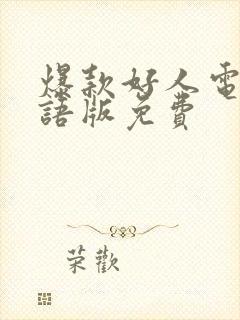 爆款好人電
語版免費
荣歡